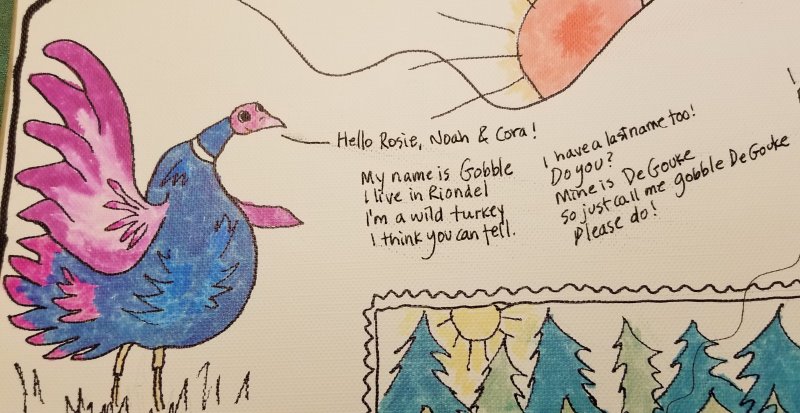 Hello Rosie, Noah & Cora!
My name is Gobble
I live in Riondel
I'm a wild turkey
I think you can tell.
I have a last name too!
Do you?
Mine is DeGouke
So just call me gobble DeGouke
Please do!